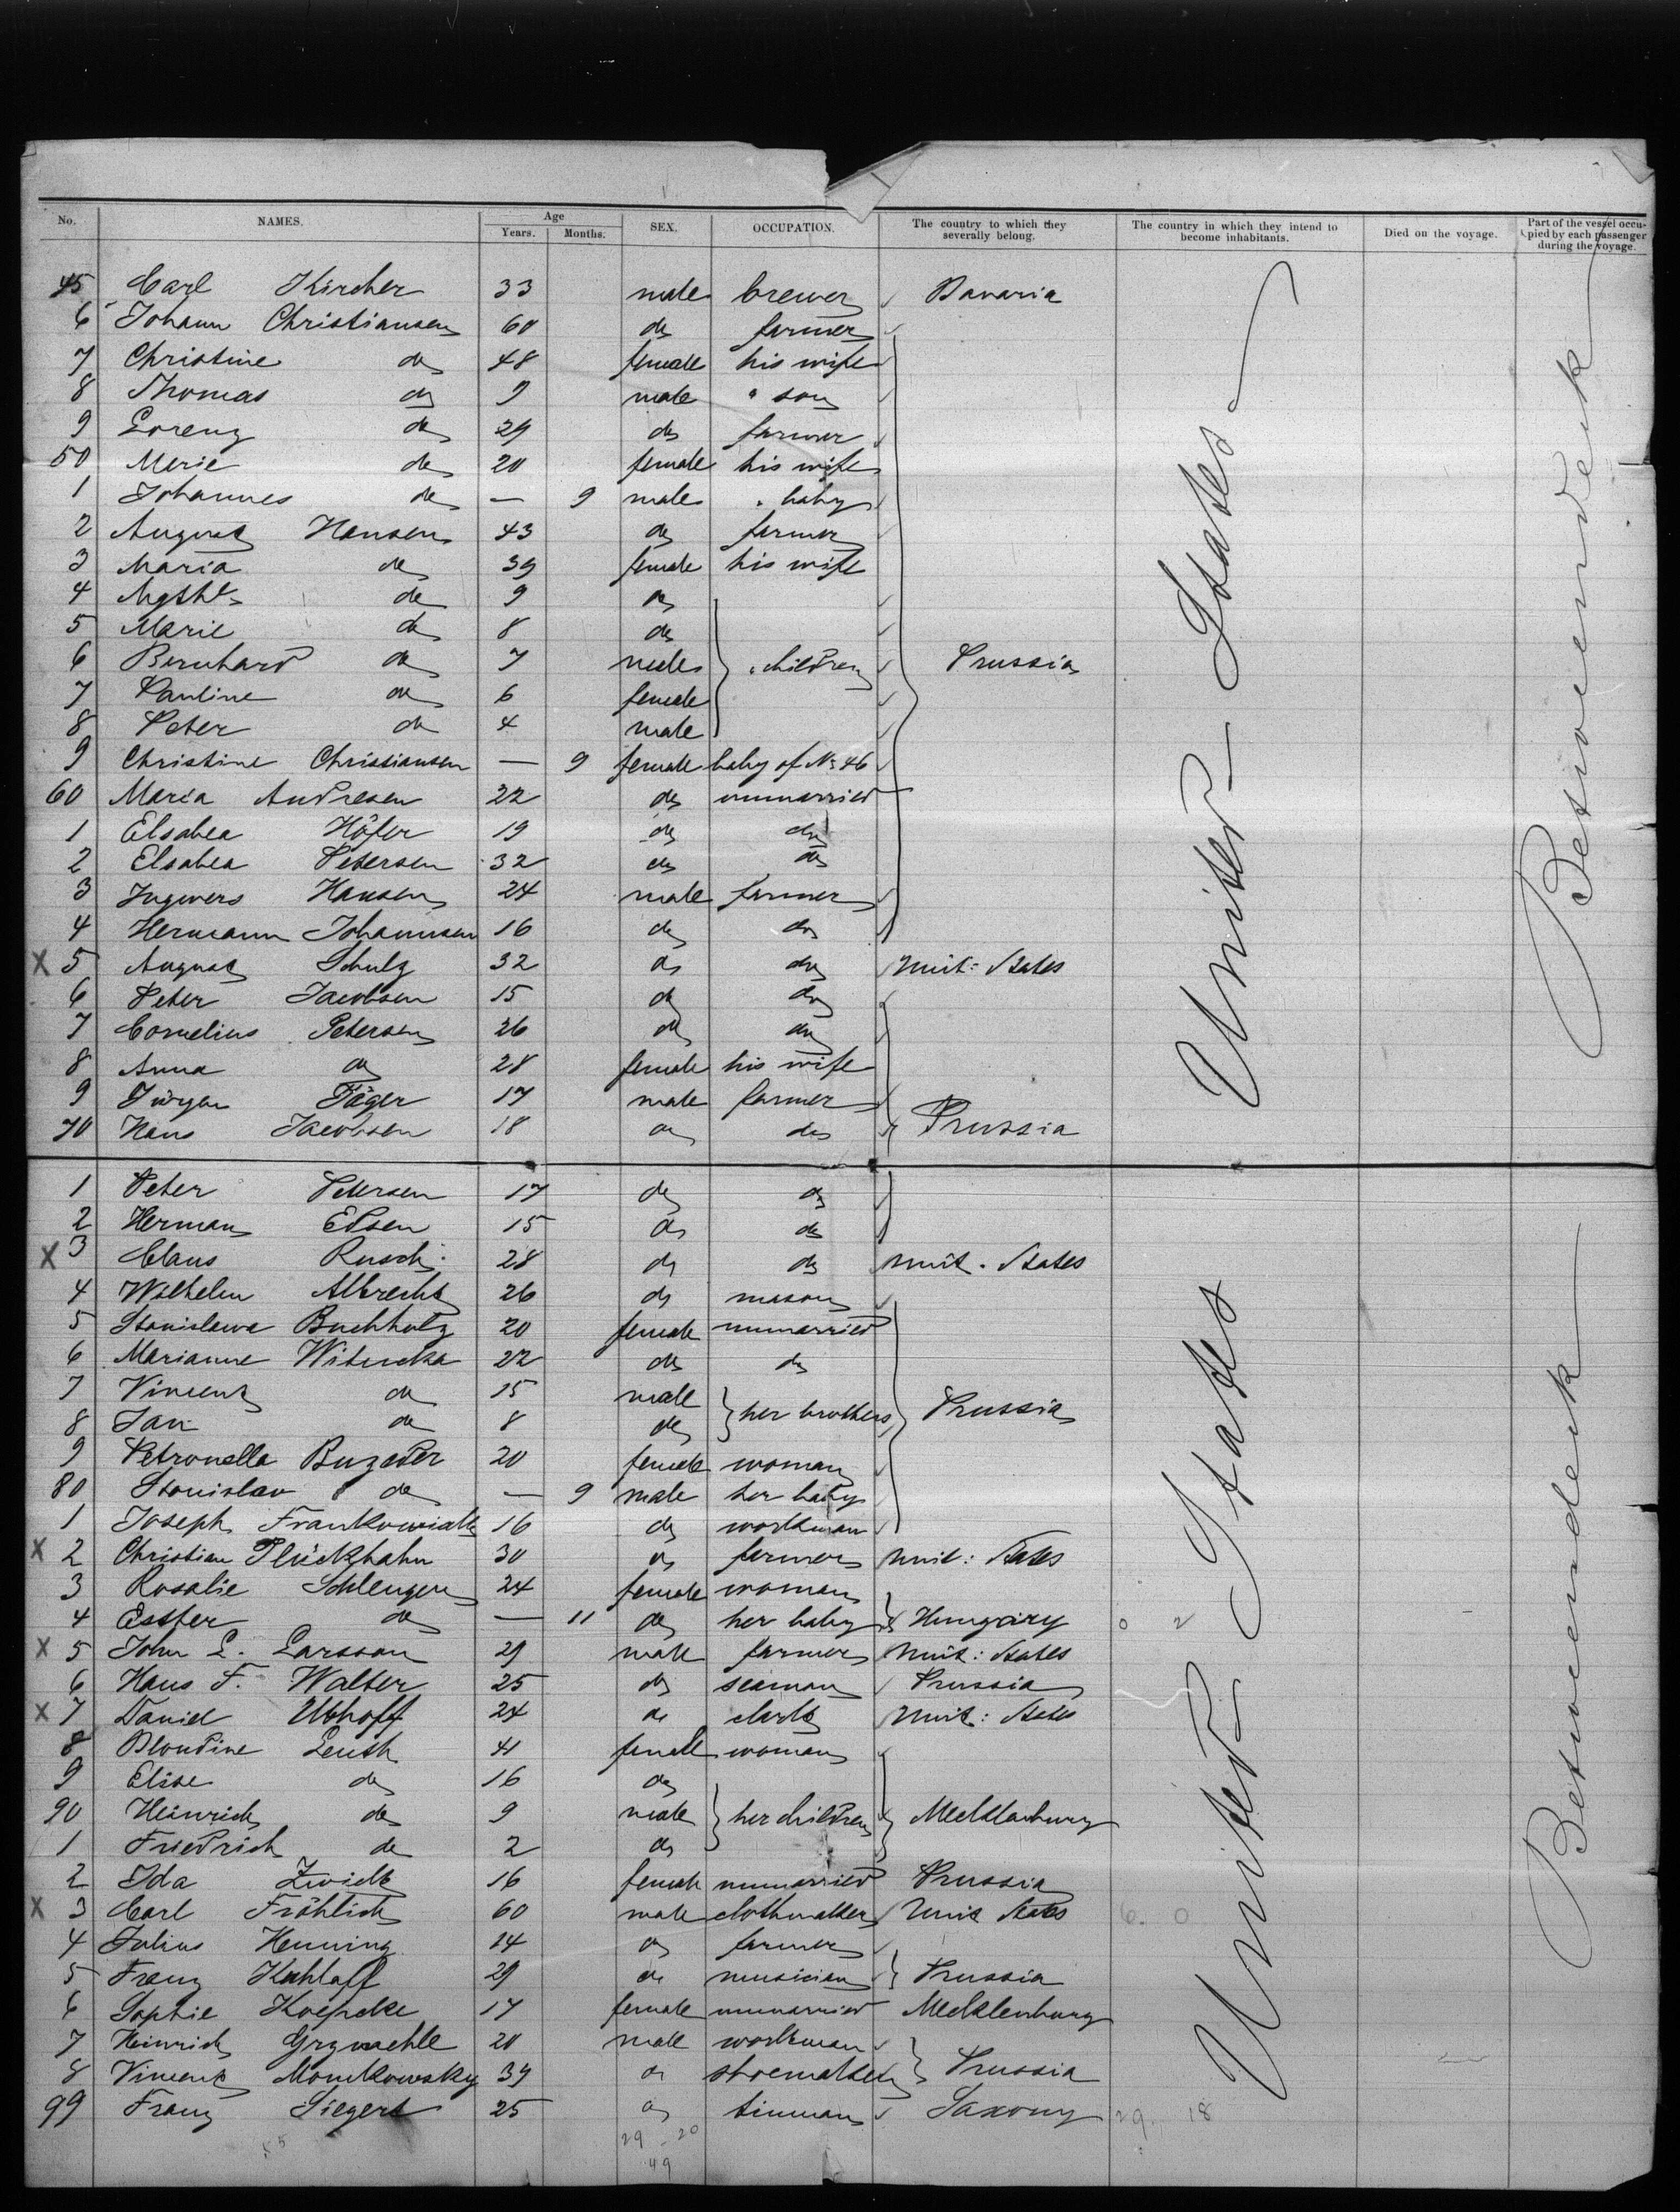 No. NAMES. Age Years. Months. SEX. OCCUPATION. The country to which they severally belong. The country in which they intend to become inhabitants. Died on the voyage. Part of the vessel occupied by each passenger during the voyage.
45 Carl Kircher 33 male brewer Bavaria
6 Johann Christiansen 60 do farmer
7 Christine do 48 female his wife
8 Thomas do 9 male " son
9 Lorenz do 29 do farmer
50 Merie do 20 female his wife
1 Johannes do — 9 male " baby
2 August Hansen 43 do farmer
3 Maria do 39 female his wife
4 do 9 do
5 Marie do 8 do
6 Bernhard do 7 male " children Prussia
7 Pauline do 6 female
8 Peter do 4 male
9 Christine Christiansen — 9 female baby of No 46
60 Maria Andresen 22 do unmarried
1 Elsabea Höfer 19 do do
2 Elsabea Petersen 32 do do
3 Ingwers Hansen 24 male farmer
4 Hermann Johannsen 16 do do
X 5 August Schulz 32 do do Unit: States
6 Peter Jacobsen 15 do do
7 Cornelius Petersen 26 do do
8 Anna do 28 female his wife
9 Jürgen Jäger 17 male farmer
70 Hans Jacobsen 18 do do Prussia
United States
Between deck
1 Peter Petersen 17 do do
2 Herman Edsen 15 do do
X 3 Claus Rusch 28 do do Unit. States
4 Wilhelm Albrecht 26 do mason
5 Stanislawa Buchholz 20 female unmarried
6 Marianne Witucka 22 do do
7 Vincenz do 15 male her brothers Prussia
8 Jan do 8 do
9 Petronella 20 female woman
80 Stanislav do — 9 male her baby
1 Joseph Frankowiak 16 do workman
X 2 Christian Plückhahn 30 do farmer Unit: States
3 Rosalie Schlenger 24 female woman
4 Esther do — 11 do her baby Hungary 0 2
X 5 John L. Larsson 29 male farmer Unit: States
6 Hans F. Walter 25 do seaman Prussia
X 7 Daniel Ubhoff 24 do clerk Unit: States
8 Blondine Leuth 41 female woman
9 Elise do 16 do
90 Heinrich do 9 male her children Mecklenburg
1 Friedrich do 2 do
2 Ida Zwick 16 female unmarried Prussia
X 3 Carl Fröhlich 60 male clothmaker Unit States 6. 0
4 Julius Henning 14 do farmer
5 Franz Kuhlaff 29 do musician Prussia
6 Sophie Koepcke 17 female unmarried Mecklenburg
7 Heinrich 20 male workman
8 Vincent Monkowsky 39 do shoemaker Prussia
99 Franz Siegert 25 do tinman Saxony 29. 18
United States
Between deck
55
29 - 20
49